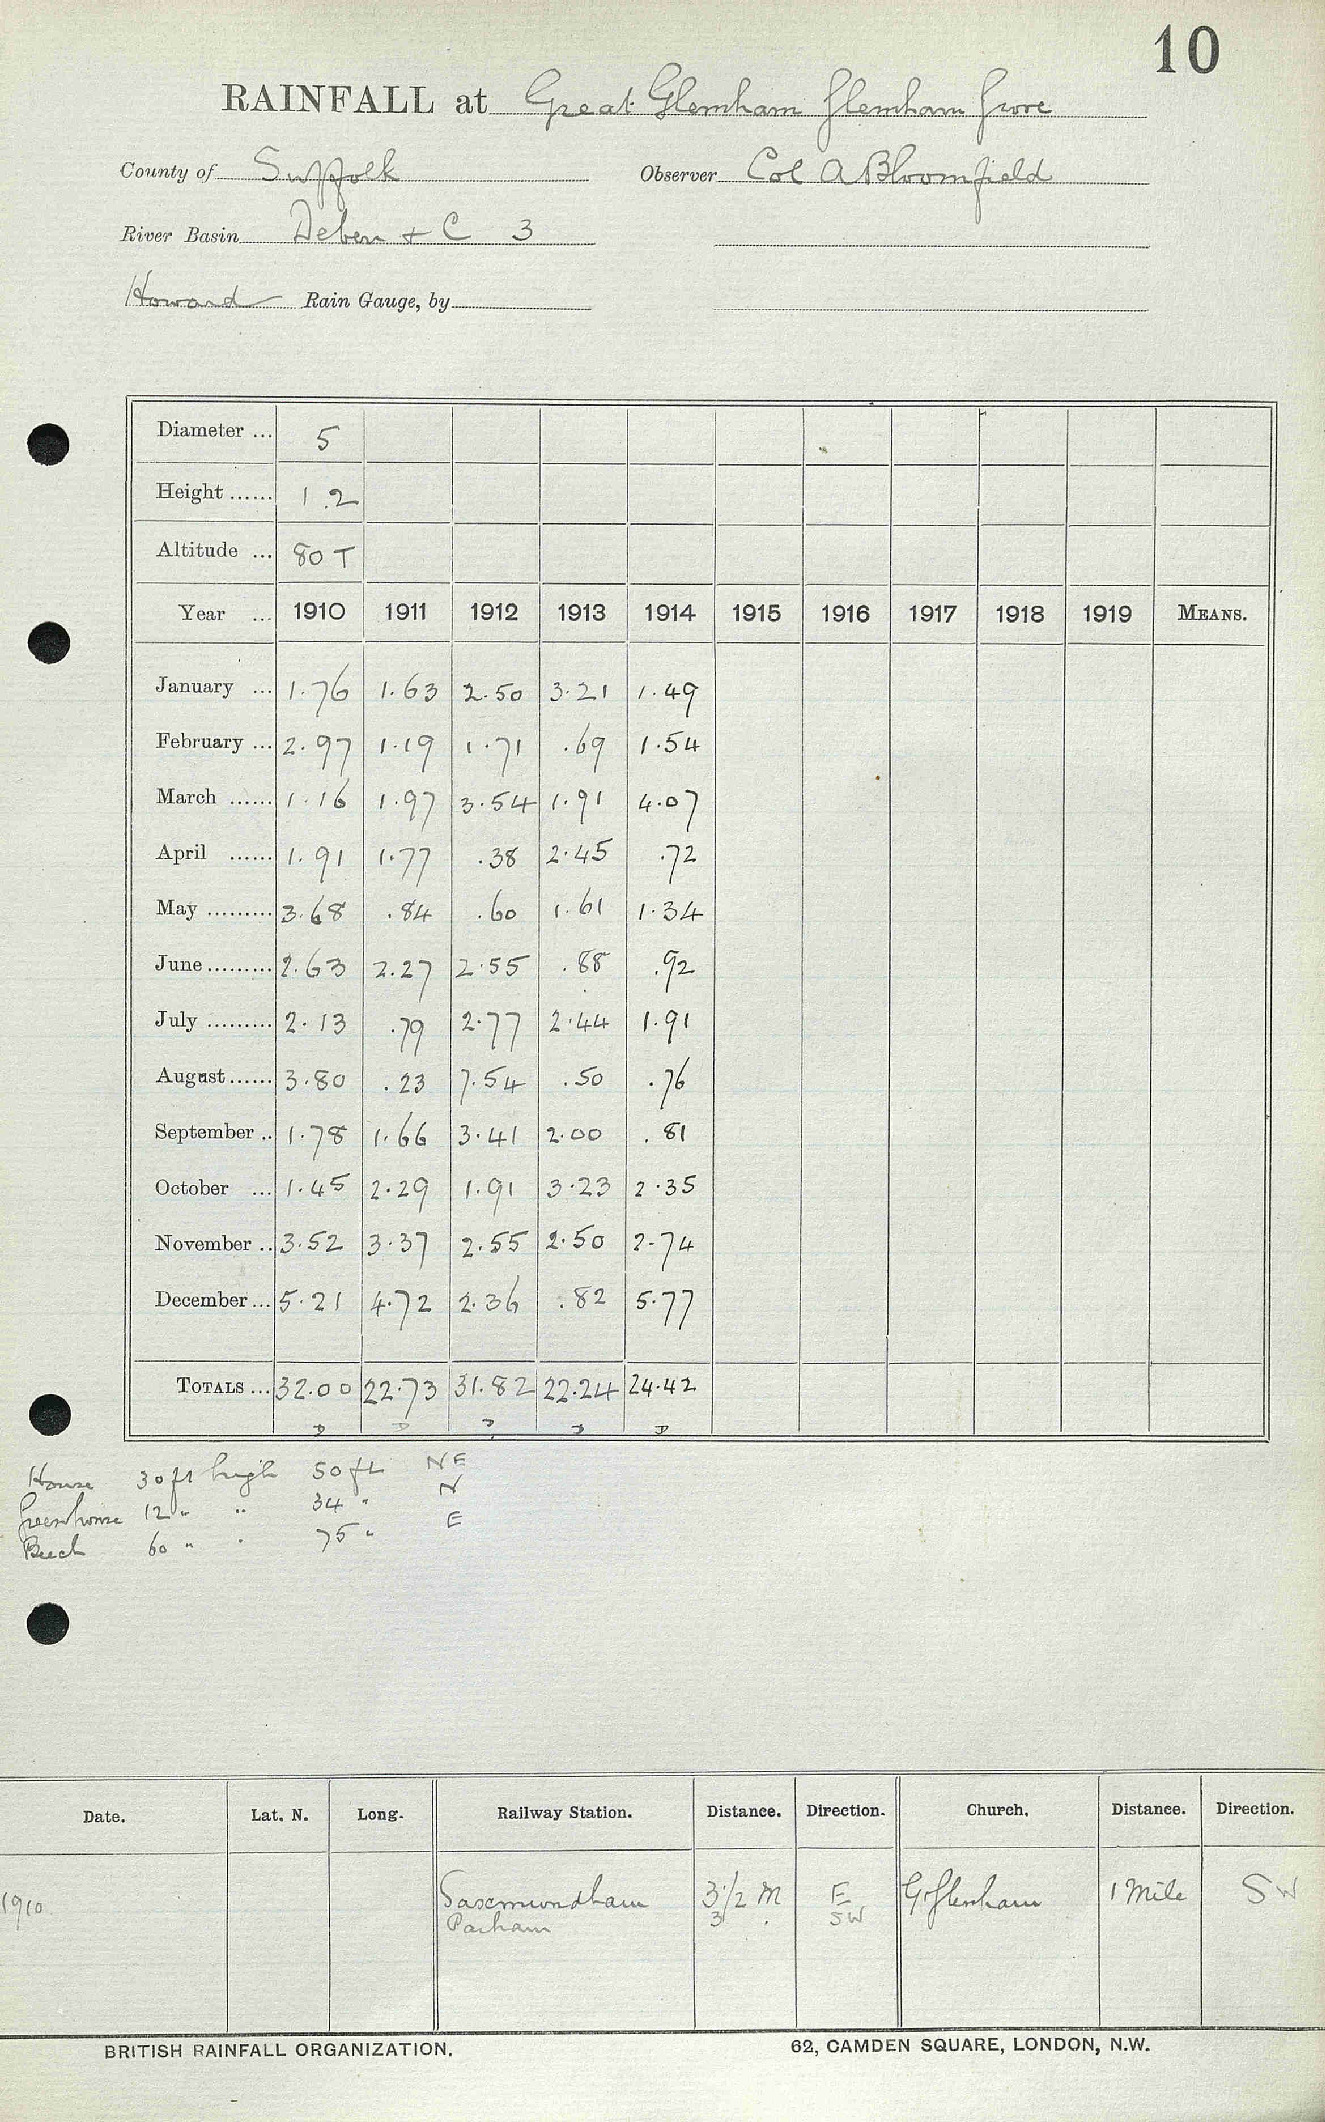 10
RAINFALL at Great Glemham Glemham Grove
County of Suffolk Observer Col A Bloomfield
River Basin Deben + C 3
Howard Rain Gauge, by
Diameter ... 5
Height ...... 1.2
Altitude ... 80 T
Year ... 1910 1911 1912 1913 1914 1915 1916 1917 1918 1919 MEANS.
January ... 1.76 1.63 2.50 3.21 1.49
February ... 2.97 1.19 1.71 .69 1.54
March ...... 1.16 1.97 3.54 1.91 4.07
April ...... 1.91 1.77 .38 2.45 .72
May ......... 3.68 .84 .60 1.61 1.34
June ......... 2.63 2.27 2.55 .88 .92
July ......... 2.13 .79 2.77 2.44 1.91
August ...... 3.80 .23 7.54 .50 .76
September .. 1.78 1.66 3.41 2.00 .81
October ... 1.45 2.29 1.91 3.23 2.35
November .. 3.52 3.37 2.55 2.50 2.74
December ... 5.21 4.72 2.36 .82 5.77
TOTALS ... 32.00 22.73 31.82 22.24 24.42
House 30 ft high 50 ft NE
Greenhouse 12 " " 34 " N
Beech 60 " " 75 " E
Date. Lat. N. Long. Railway Station. Distance. Direction. Church. Distance. Direction.
1910. Saxmundham 3 1/2 M E Gt Glenham 1 Mile SW
Parham 3 " SW
BRITISH RAINFALL ORGANIZATION. 62, CAMDEN SQUARE, LONDON, N.W.